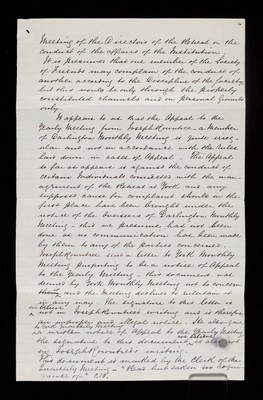 Meeting of the Directors of the Retreat on the
conduct of the affairs of the Institution.
It is presumed that one member of the Society
of Friends may complain of the conduct of
another according to the Discipline of the Society
but this would be only through the properly
constituted channels and on personal grounds
only.
It appears to us that the Appeal to the
Yearly Meeting from Joseph Rowntree a Member
of Darlington Monthly Meeting is quite irreg-
ular and not in accordance with the rules
laid down in cases of Appeal. The Appeal
so far as appears is against the conduct of
certain Individuals connected with the man-
agement of the Retreat at York and any
supposed cause for complaint should in the
first place have been brought under the
notice of the Overseers of Darlington Monthly
Meeting - this we presume has not been
done as no communication had been made
by them to any of the parties concerned.
Joseph Rowntree sent a letter to York Monthly
Meeting purporting to be a notice of Appeal
to the Yearly Meeting - this document was
deemed by York Monthly Meeting not to concern
them and the Meeting declined to entertain it
in any way. The signature to this letter is
we believe
not in Joseph Rowntree's writing and is therefore
an improper and illegal notice. He also gave
to York Monthly Meeting
a written notice of Appeal to the Yearly Meeting
the signature to this document is also not
we believe
in Joseph Rowntree's writing.
This document is marked by the Clerk of the
Quarterly Meeting - "Read but taken no cogni-
zance of."